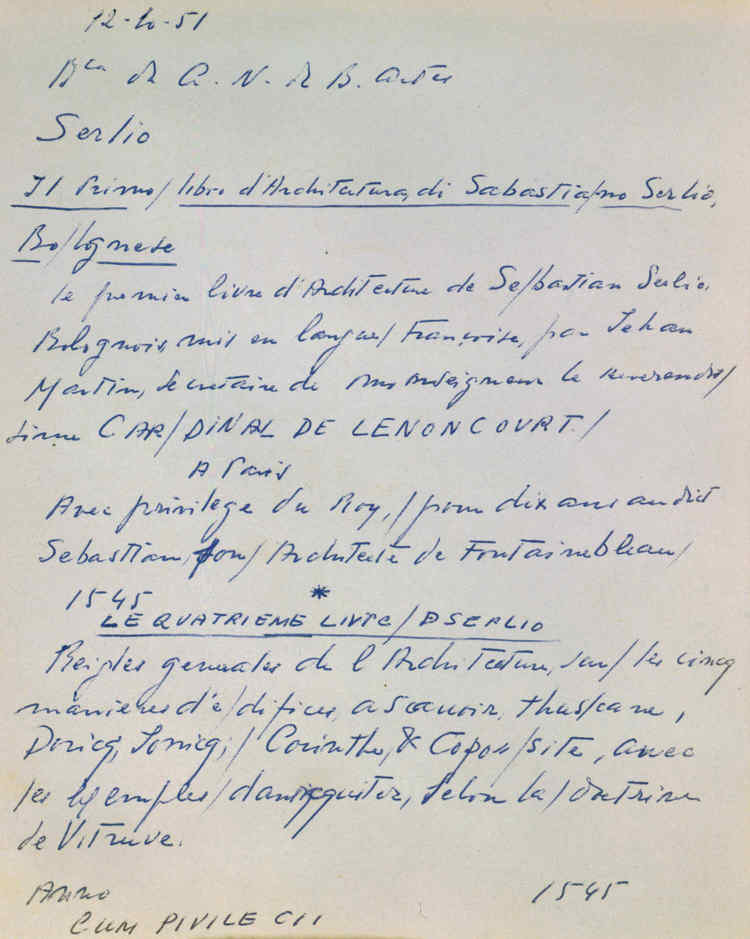 12-10-51
Bca de A. N. de B. Artes
Serlio
Il Primo/ libro d'Architettura, di Sabastia/no Serlio,
Bo/lognese
le premier livre d'Architecture de Se/bastian Serlio.
Bolognois, mis en langue/ Françoise, par Jehan
Martin, secretaire de monseigneur le reverendis/
sime CAR/DINAL DE LENONCOURT./
A Paris
Avec privilege du Roy,/ pour dix ans audict
Sebastian, son/ Architecte de Fontainebleau/
1545 *
LE QUATRIEME LIVRE/ D SERLIO
Reigles generales de l'Architecture, sur/ les cincq
manieres d'e/difices, a scavoir, thus/cane,
Doricq, Ionicq,/ Corinthe, & Copos/site, avec
les exemples/ danticquitez, selon la/ doctrine
de Vitruve.
Anno 1545
CUM PIVILE CII